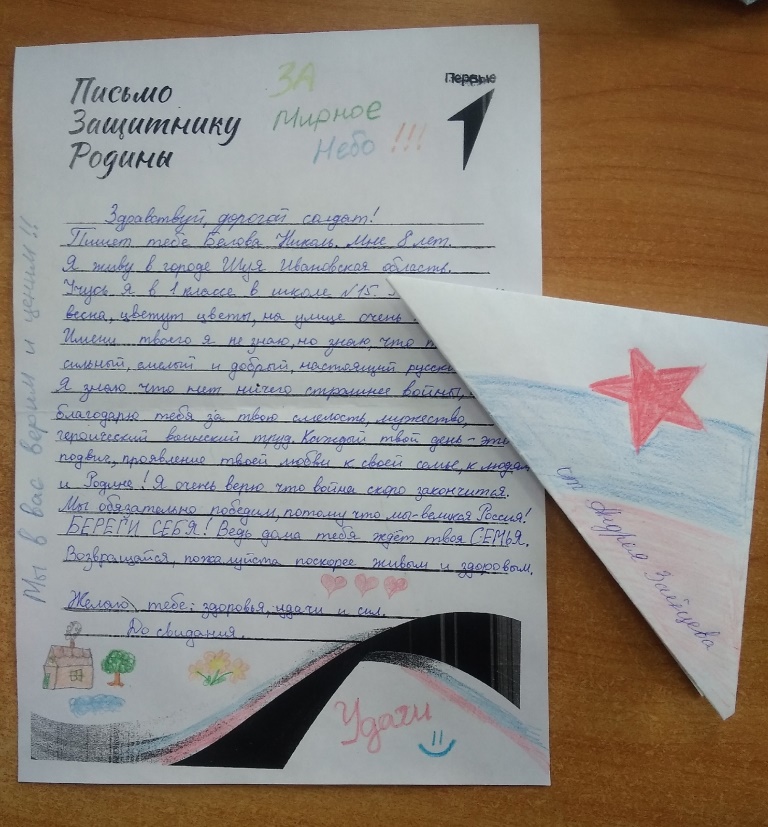 Письмо
Защитнику
Родины
ЗА
Мирное
Небо !!!
Первые
Здравствуй, дорогой солдат!
Пишет тебе Белова Николь. Мне 8 лет.
Я живу в городе Шуя Ивановская область.
Учусь я в 1 классе в школе №15.
весна, цветут цветы, на улице очень
Имени твоего я не знаю, но знаю, что
сильный, смелый и добрый, настоящий русски
Я знаю что нет ничего страшнее войны,
благодарю тебя за твою смелость, мужество,
героический воинский труд. Каждый твой день - это
подвиг, проявление твоей любви к своей семье, к людям
и Родине! Я очень верю что война скоро закончится.
Мы обязательно победим, потому что мы-великая Россия!
БЕРЕГИ СЕБЯ! Ведь дома тебя ждёт твоя СЕМЬЯ.
Возвращайся, пожалуйста поскорее живым и здоровым.
Желаю тебе: здоровья, удачи и сил.
До свидания.
Удачи
Мы в вас верим и ценим!!
от Андрея Зайцева